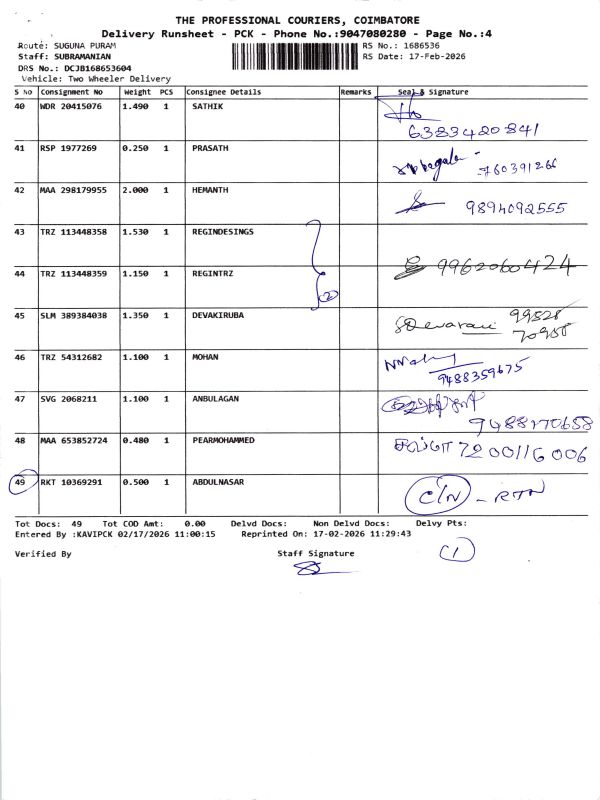 THE PROFESSIONAL COURIERS, COIMBATORE
Delivery Runsheet - PCK - Phone No.:9047080280 - Page No.:4
Route: SUGUNA PURAM RS No.: 1686536
Staff: SUBRAMANIAN RS Date: 17-Feb-2026
DRS No.: DCJB168653604
Vehicle: Two Wheeler Delivery
S No Consignment No Weight PCS Consignee Details Remarks Seal & Signature
40 WDR 20415076 1.490 1 SATHIK
6383420841
41 RSP 1977269 0.250 1 PRASATH
760391266
42 MAA 298179955 2.000 1 HEMANTH
9894092555
43 TRZ 113448358 1.530 1 REGINDESINGS
44 TRZ 113448359 1.150 1 REGINTRZ
(2) 9962060424
45 SLM 389384038 1.350 1 DEVAKIRUBA
99528
70958
46 TRZ 54312682 1.100 1 MOHAN
9488359675
47 SVG 2068211 1.100 1 ANBULAGAN
9488170658
48 MAA 653852724 0.480 1 PEARMOHAMMED
7200116006
49 RKT 10369291 0.500 1 ABDULNASAR
C/N - RTN
Tot Docs: 49 Tot COD Amt: 0.00 Delvd Docs: Non Delvd Docs: Delvy Pts:
Entered By :KAVIPCK 02/17/2026 11:00:15 Reprinted On: 17-02-2026 11:29:43
Verified By Staff Signature (1)